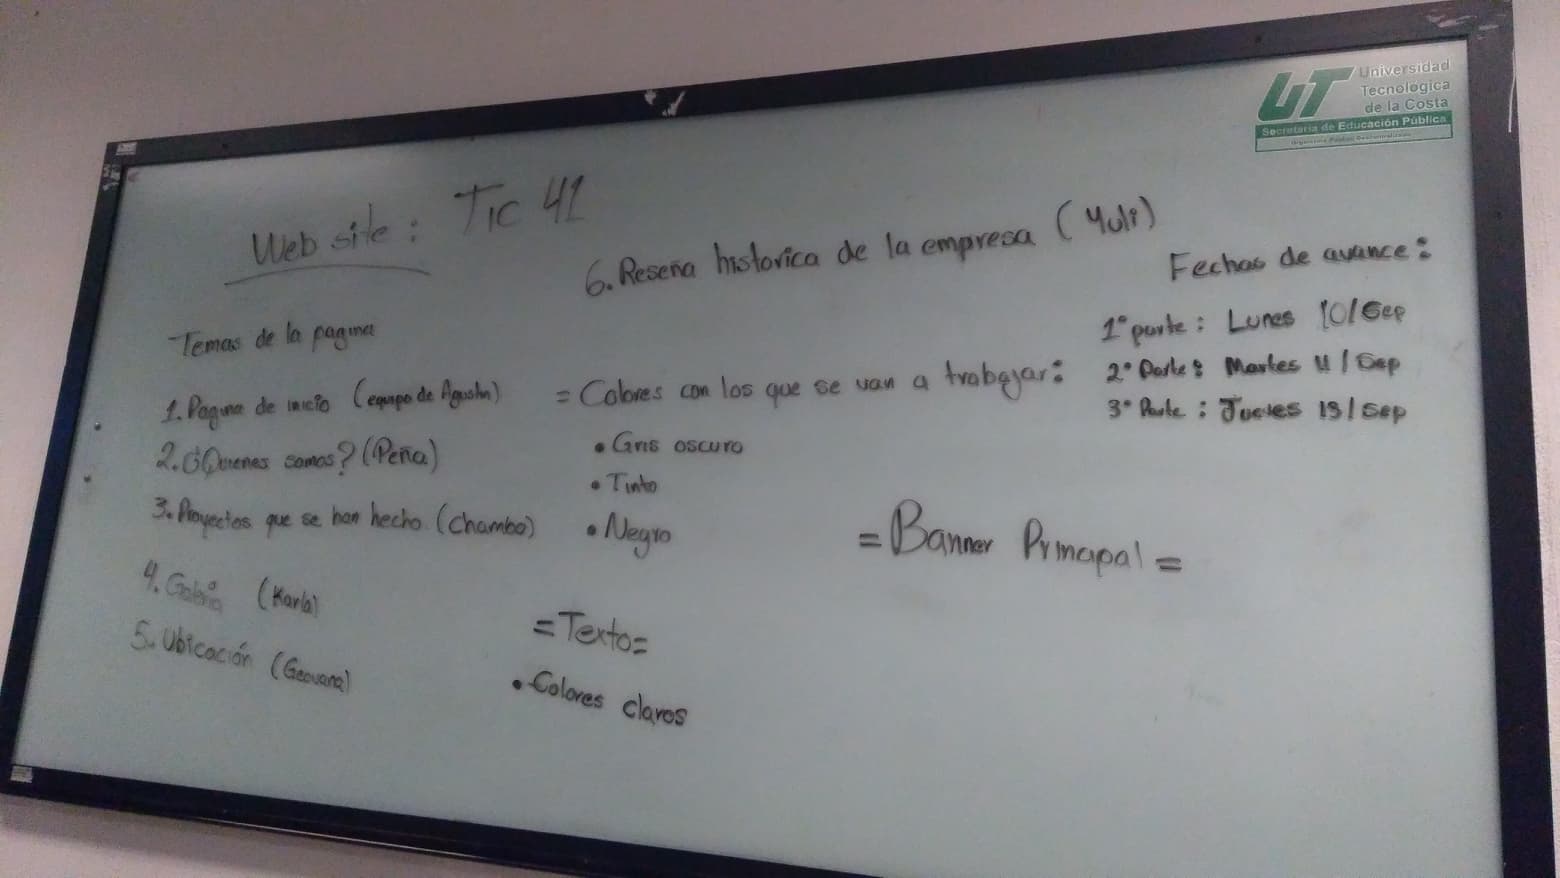 Universidad
Tecnologica
de la Costa
UT
Secretaría de Educación Pública
Web site: TIC 41
Temas de la pagina
1. Pagina de inicio (equipo de Agustin)
2. ¿Quienes somos? (Peña)
3. Proyectos que se han hecho (Chambo)
4. Galeria (Karla)
5. Ubicación (Geovana)
6. Reseña historica de la empresa (Yuli)
= Colores con los que se van a trabajar:
• Gris oscuro
• Tinto
• Negro
= Texto =
• Colores claros
Fechas de avance:
1° parte: Lunes 10/Sep
2° Parte: Martes 11/Sep
3° Parte: Jueves 13/Sep
= Banner Principal =